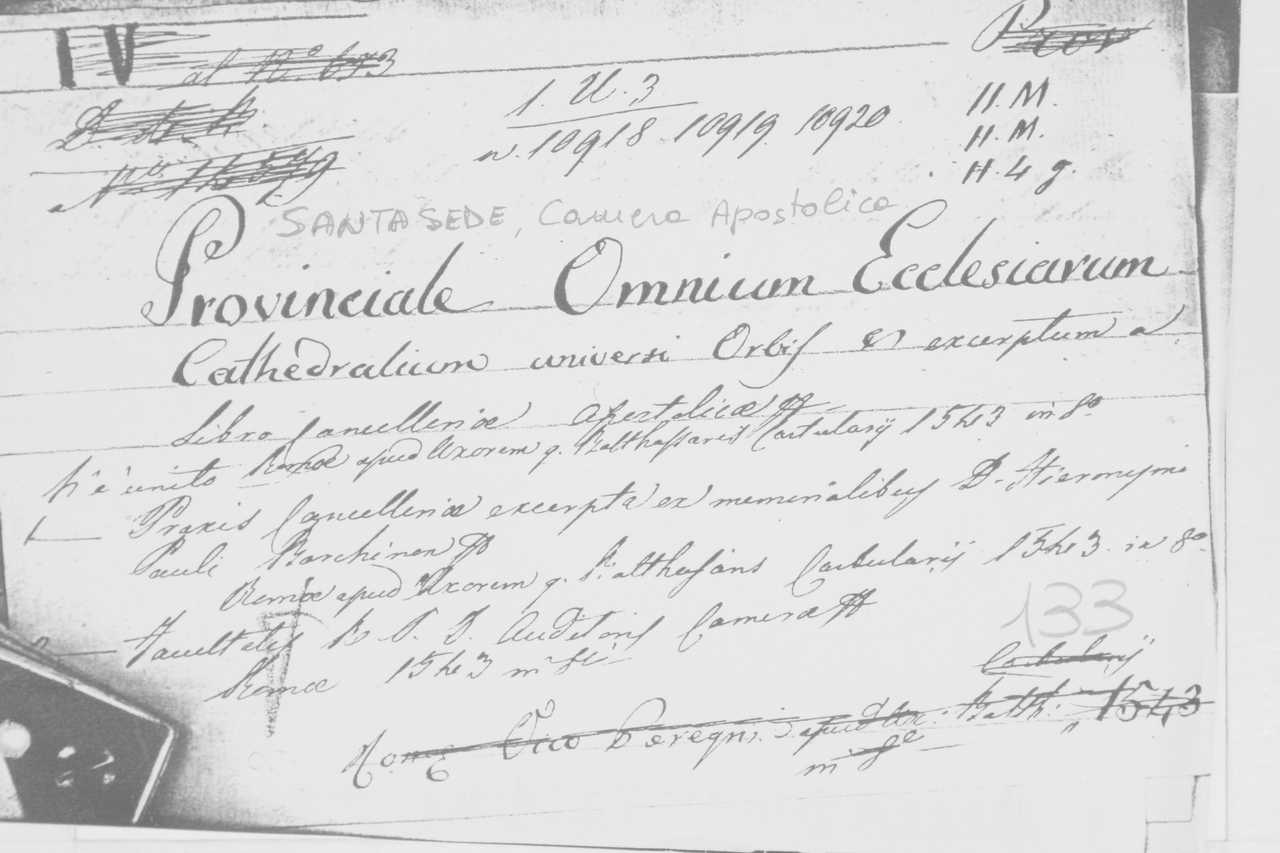 IV al N.º 673
Prov
1. U. 3
n. 10918 10919 10920
H. M.
H. M.
H. 4 g.
SANTA SEDE, Camera Apostolica
Provinciale Omnium Ecclesiarum
Cathedralium universi Orbis & excerptum a
Libro Cancellariæ Apostolicæ
V'è unito Romæ apud Uxorem q. Balthassaris Cartularij 1543 in 8º
Praxis Cancellariæ excerpta ex memorialibus D. Hieronymi
Pauli Barchinon
Romæ apud Uxorem q. Balthasaris Cartularij 1543 in 8º
Facultates R. P. D. Auditoris Cameræ
133
Romæ 1543
Cartularij
Romæ Vico Peregni. apud Ux: Balth: 1543
in 8º